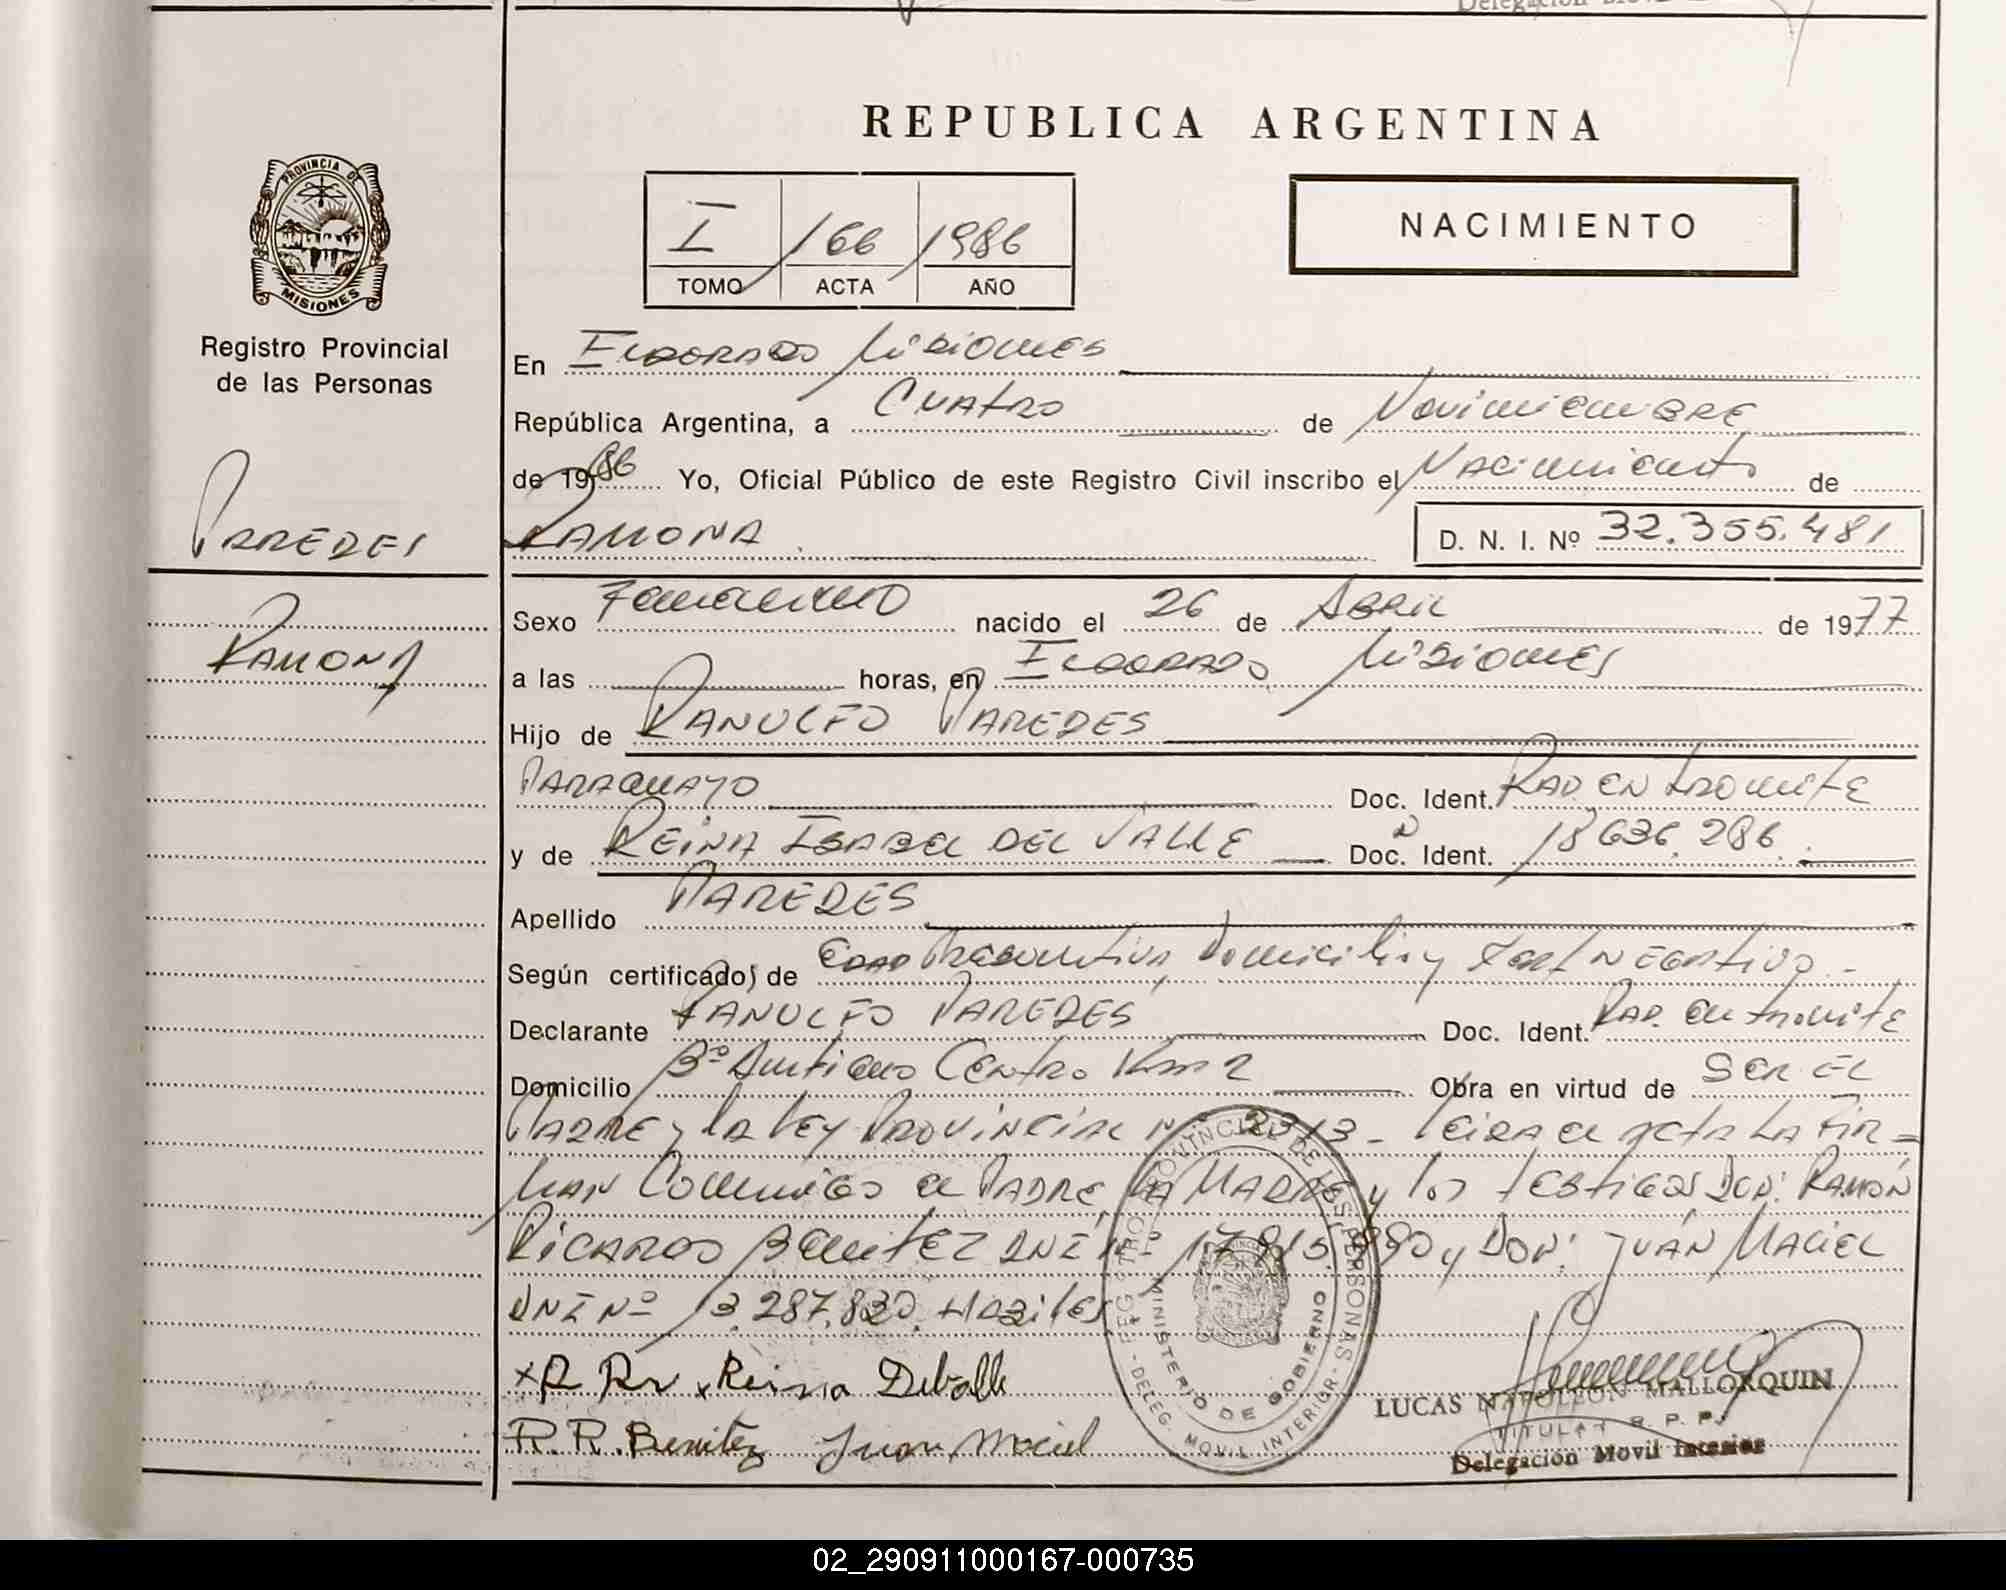 REPUBLICA ARGENTINA
PROVINCIA DE
MISIONES
Registro Provincial
de las Personas
I / 66 / 1986
TOMO ACTA AÑO
NACIMIENTO
En Eldorado Misiones
República Argentina, a Cuatro de Noviembre
de 1986 Yo, Oficial Público de este Registro Civil inscribo el Nacimiento de
PAREDES
RAMONA
D. N. I. Nº 32.355.481
RAMONA
Sexo Femenino nacido el 26 de Abril de 1977
a las horas, en Eldorado Misiones
Hijo de RANULFO PAREDES
PARAGUAYO Doc. Ident. RAD. en tramite
y de REINA ISABEL DEL VALLE Doc. Ident. 18 636.286.
Apellido PAREDES
Según certificado) de Edad Presuntiva, Domicilio y Cert NEGATIVO. -
Declarante RANULFO PAREDES Doc. Ident. RAD. en tramite
Domicilio Bº Centro Km 2 Obra en virtud de SER EL
PADRE y la ley Provincial Nº Leida el acta la FIR =
man Conmigo el PADRE, la MADRE y los testigos DON: RAMÓN
RICARDO BENITEZ DNI Nº y DON: JUÁN MACIEL
DNI Nº Habiles
x R. x Reina Deballe
R. R. Benitez Juan Maciel
REGISTRO PROVINCIAL DE LAS PERSONAS
MINISTERIO DE GOBIERNO
- DELEG. MOVIL INTERIOR -
LUCAS NAPOLEON MALLORQUIN
TITULAR R. P. P.
Delegación Movil Interior
02_290911000167-000735